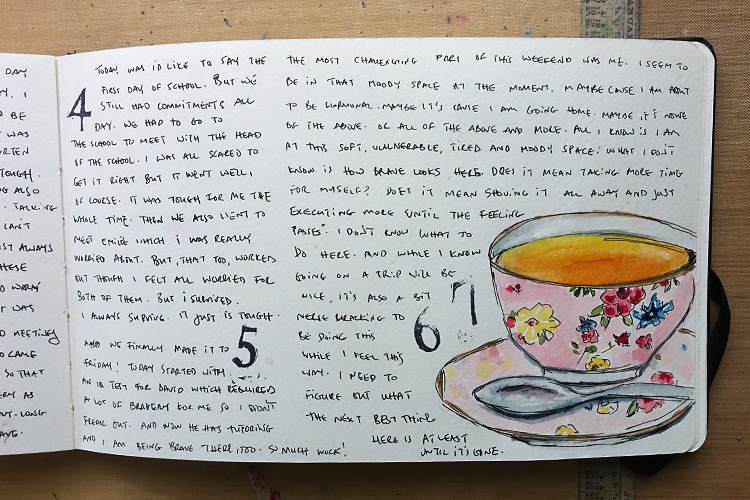 DAY
Y. I
TO BE
WAS
TOUGH.
ALSO
TALKING
CAN'T
ALWAYS
THESE
WAS
MEETING
CAME
SO THAT
AS
LONG
4
TODAY WAS I'D LIKE TO SAY THE
FIRST DAY OF SCHOOL. BUT WE
STILL HAD COMMITMENTS ALL
DAY. WE HAD TO GO TO
THE SCHOOL TO MEET WITH THE HEAD
OF THE SCHOOL. I WAS ALL SCARED TO
GET IT RIGHT BUT IT WENT WELL,
OF COURSE. IT WAS TOUGH FOR ME THE
WHOLE TIME. THEN WE ALSO WENT TO
MEET WHICH I WAS REALLY
WORRIED ABOUT. BUT, THAT TOO, WORKED
OUT THOUGH I FELT ALL WORRIED FOR
BOTH OF THEM. BUT I SURVIVED.
I ALWAYS SURVIVE. IT JUST IS TOUGH.
5
AND WE FINALLY MADE IT TO
FRIDAY! TODAY STARTED WITH
AN TEST FOR DAVID WHICH REQUIRED
A LOT OF BRAVERY FOR ME SO I DIDN'T
FREAK OUT. AND NOW HE HAS TUTORING
AND I AM BEING BRAVE THERE, TOO. SO MUCH WORK!
THE MOST CHALLENGING PART OF THIS WEEKEND WAS ME. I SEEM TO
BE IN THAT MOODY SPACE AT THE MOMENT. MAYBE CAUSE I AM ABOUT
TO BE HORMONAL. MAYBE IT'S CAUSE I AM GOING HOME. MAYBE IT'S NONE
OF THE ABOVE. OR ALL OF THE ABOVE AND MORE. ALL I KNOW IS I AM
AT THIS SOFT, VULNERABLE, TIRED AND MOODY SPACE. WHAT I DON'T
KNOW IS HOW BRAVE LOOKS HERE. DOES IT MEAN TAKING MORE TIME
FOR MYSELF? DOES IT MEAN SHOVING IT ALL AWAY AND JUST
EXECUTING MORE UNTIL THE FEELING
PASSES? I DON'T KNOW WHAT TO
DO HERE. AND WHILE I KNOW
GOING ON A TRIP WILL BE
NICE, IT'S ALSO A BIT
NERVE WRACKING TO
BE DOING THIS
WHILE I FEEL THIS
WAY. I NEED TO
FIGURE OUT WHAT
THE NEXT BEST THING
HERE IS AT LEAST
UNTIL IT'S GONE.
6 7